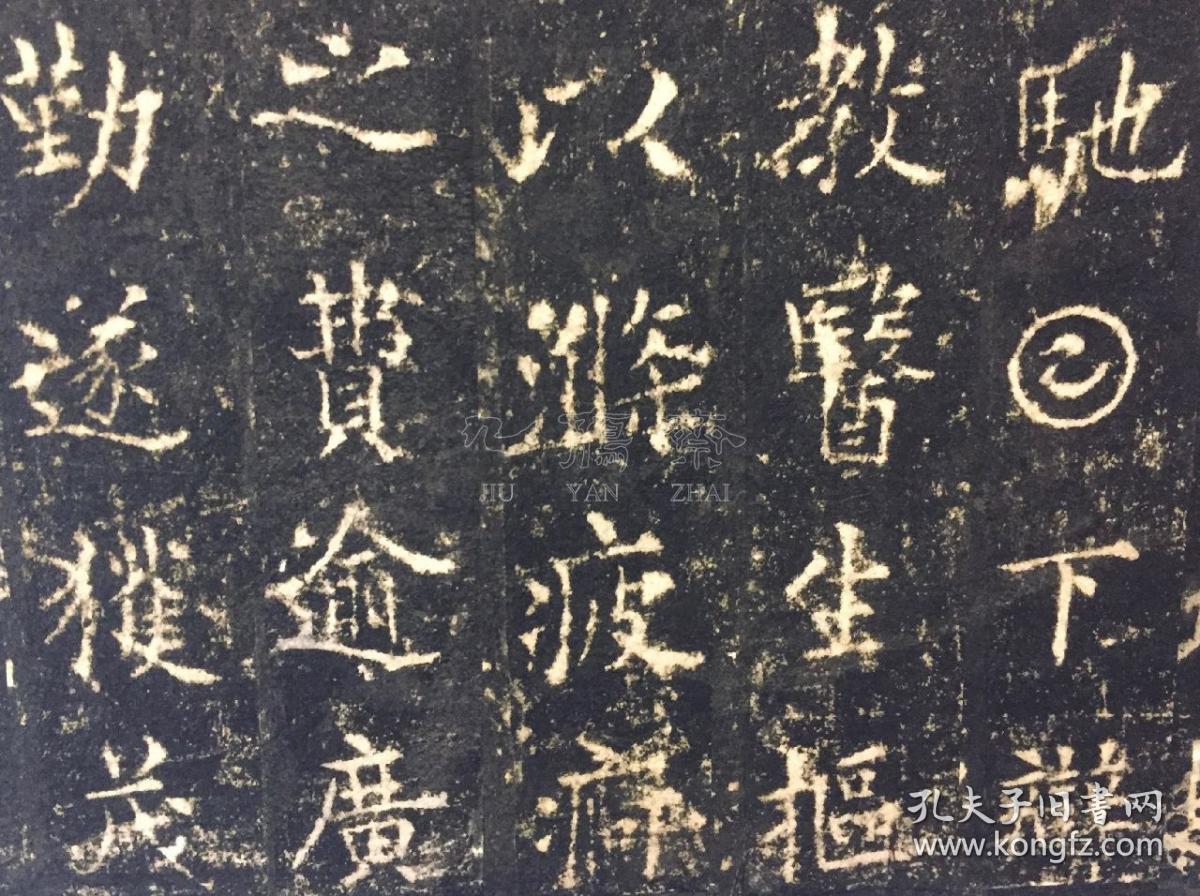 馳𡆠下
教醫生摳
以滌疲
之費逾廣
勤遂獲茂
九乙鴈齋
JIU YAN ZHAI
孔夫子旧書网
www.kongfz.com